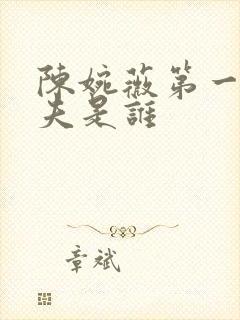 陳婉薇第一
夫是誰
章斌